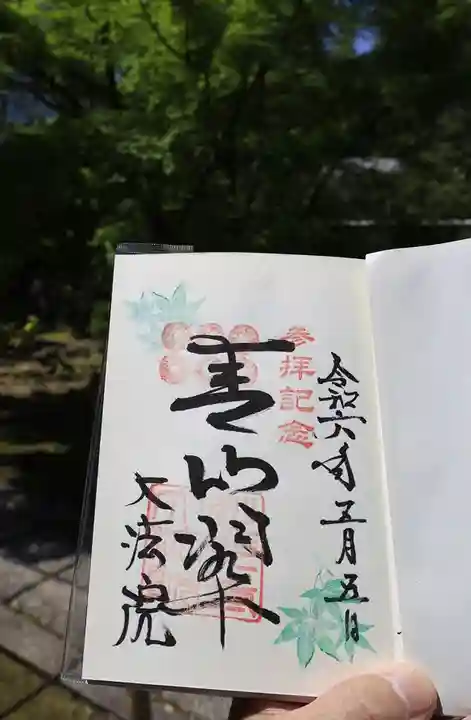 参拝記念
令和六年五月五日
青山
大法院